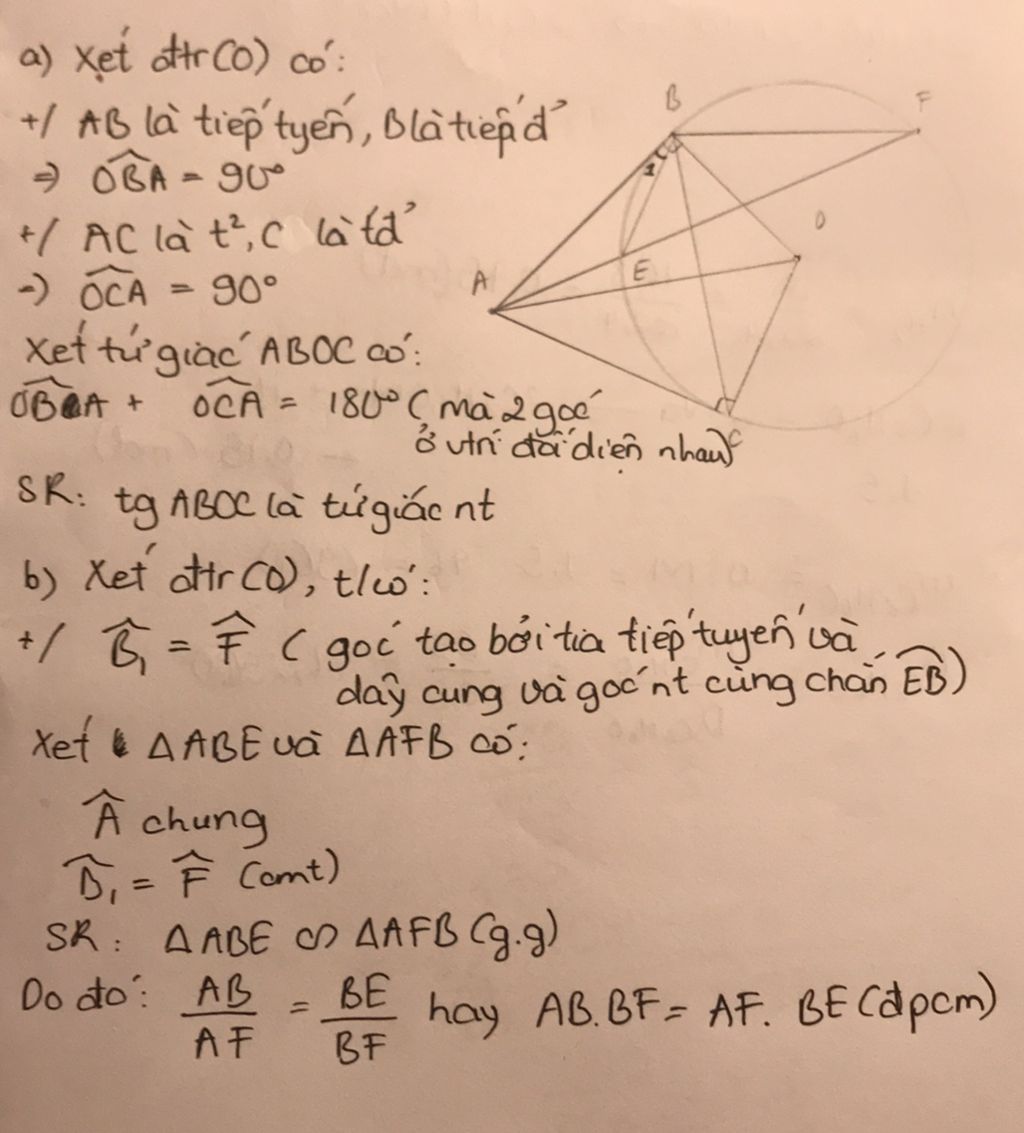 a) Xét đtr(O) có:
+/ AB là tiếp tyến, B là tiếp đ'
⇒ OBA = 90°
+/ AC là t², C là tđ'
→) OCA = 90°
Xét tứ giác ABOC có:
OBA + OCA = 180° ( mà 2 góc
ở vtrí đối diện nhau)
SR: tg ABOC là tứ giác nt
b) Xét đtr(O), t/có:
+/ B₁ = F ( góc tạo bởi tia tiếp tuyến và
dây cung và góc nt cùng chắn EB)
Xét ΔABE và ΔAFB có:
A chung
B₁ = F (cmt)
SR: ΔABE ∽ ΔAFB (g.g)
Do đó: AB/AF = BE/BF hay AB.BF = AF. BE (đpcm)
B
F
1
O
E
A
C